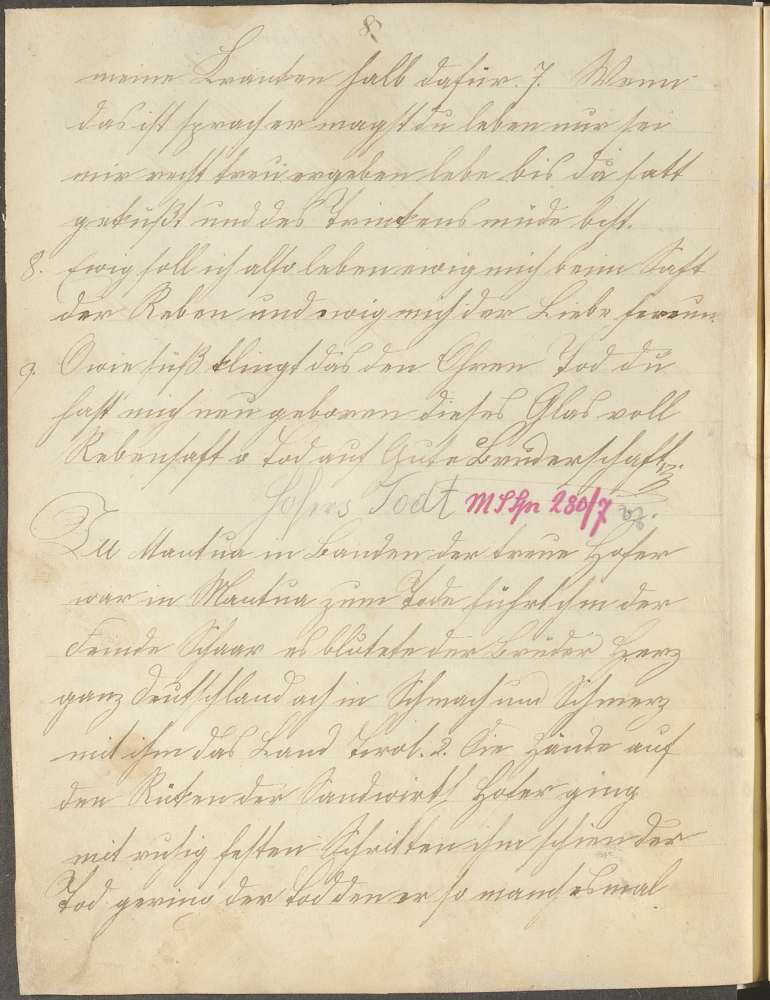 8
meine Kranken halb dafür. 7. Wenn
das ist sprach er magst du leben nur sei
mir recht treu ergeben lebe bis du satt
geküßt und des Trinkens müde bist.
8. Ewig soll ich also leben ewig mich beim Saft
der Reben und ewig mich der Liebe freuen.
9. O wie süß klingt das den Ohren Tod du
hast mich neu geboren dieses Glas voll
Rebensaft o Tod auf Gute Bruderschaft.
Hofers Todt MS Hn 280/7
Zu Mantua in Banden der treue Hofer
war in Mantua zum Tode führt ihn der
Feinde Schaar es blutete der Brüder Herz
ganz Deutschland ach in Schmach und Schmerz
mit ihm das Land Tirol. 2. Die Hände auf
den Rüken der Sandwirth Hofer ging
mit ruhig festen Schritten ihm schien der
Tod gering der Tod den er so manchesmal